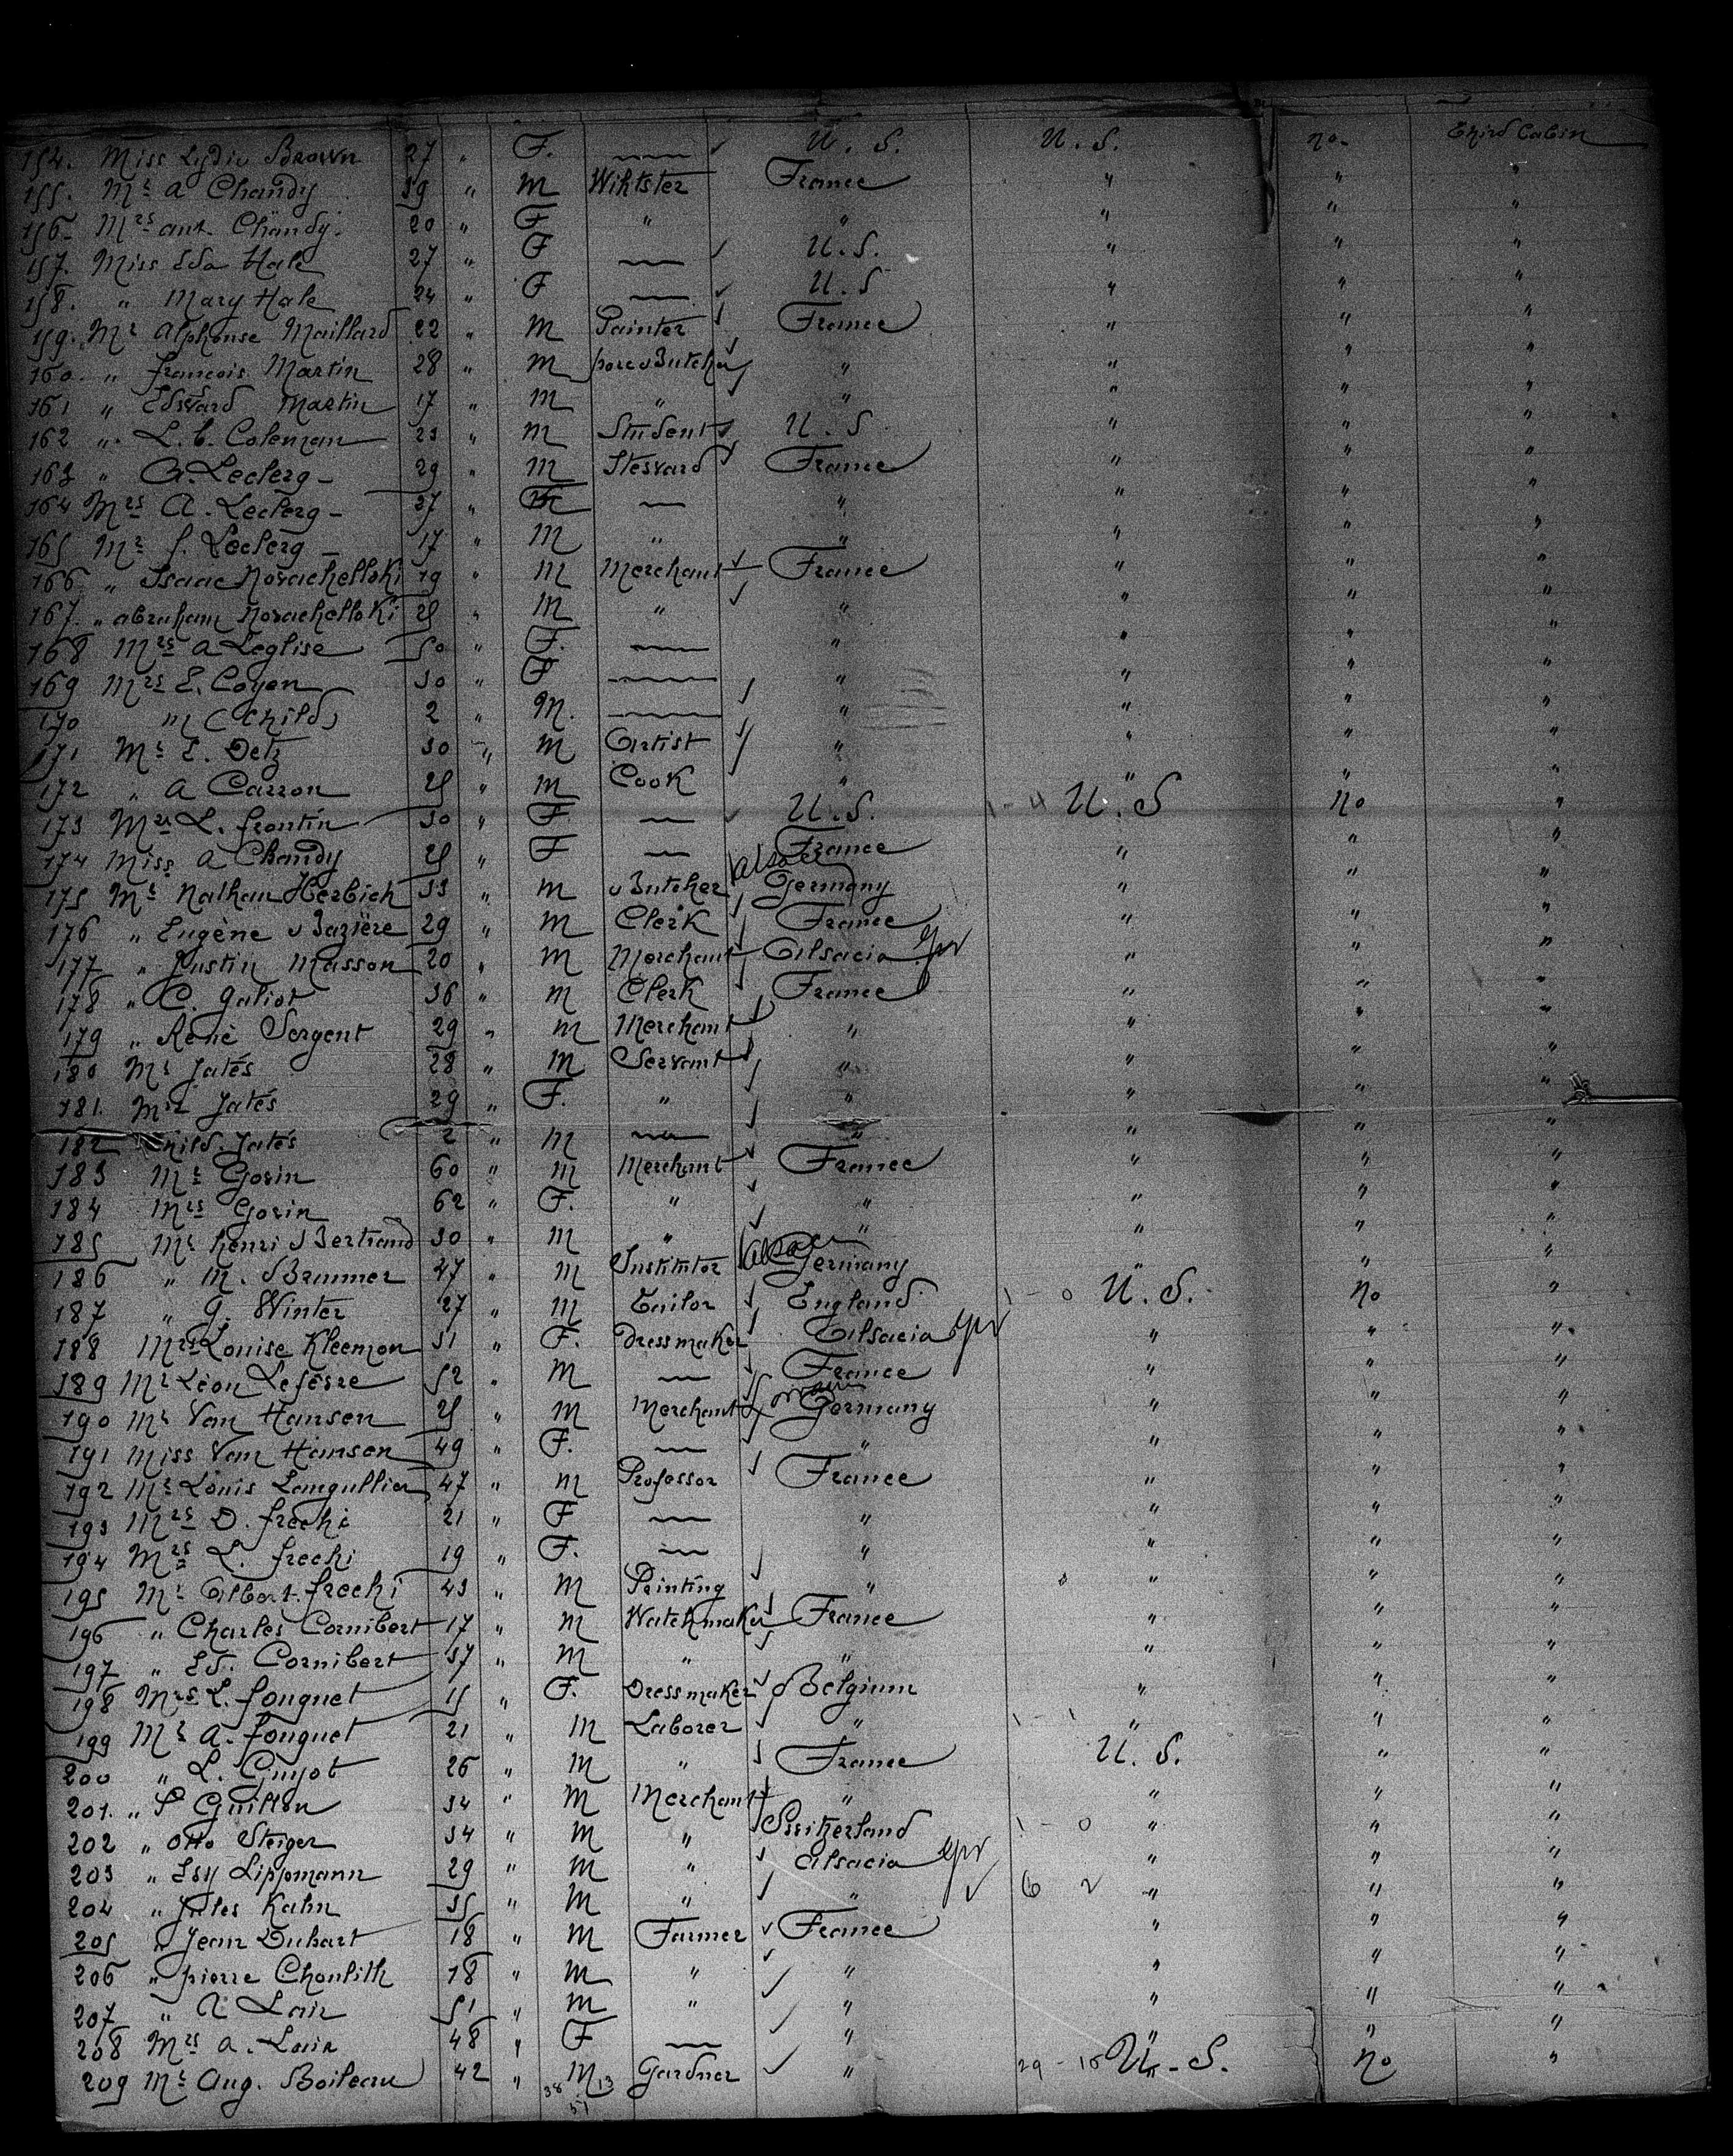 154. Miss Lydia Brown 27 " F. U. S. U. S. no- Third Cabin
155. Mr A Chandy 39 " M France " " "
156- Mrs ant. Chandy. 20 " F " " " " "
157. Miss Eda Hale 27 " F U. S. " " "
158. " Mary Hale 24 " F U. S " " "
159. Mr Alphonse Maillard 22 " M Painter France " " "
160. " francois Martin 28 " M porc Butcher " " " "
161 " Edward Martin 17 " M " " " " "
162 " L. C. Coleman 23 " M Student U. S " " "
163 " A. Leclerg - 29 " M Steward France " " "
164 Mrs A. Leclerg - 27 " " " " "
165 Mr f. Leclerg - 17 " M " " " " "
166 " Isaac 19 " M Merchant France " " "
167. " abraham M " " " " "
168 Mrs A Leglise 50 " F. " " " "
169 Mrs E. Coyen 30 " F " " " "
170 " (Child) 2 " M. " " " "
171 Mr E. Detz 30 " M Artist " " " "
172 " A Carron 25 " M Cook " " " "
173 Mrs L. frontin 30 " F U. S. U. S no "
174 Miss A Chandy 25 " F France " " "
175 Mr Nathan Herbich 33 " M Butcher Alsace Germany " " "
176 " Eugène Bazière 29 " M Clerk France " " "
177 " Justin Masson 20 " M Merchant Alsacia " " "
178 " C. galiot 36 " M Clerk France " " "
179 " René Sergent 29 " M Merchant " " " "
180 Mr Jatés 28 " M Servant " " " "
181. Mrs Jatés 29 " F. " " " " "
182 Child. Jatés 2 " M " " " "
183 Mr Gorin 60 " M Merchant France " " "
184 Mrs Gorin 62 " F. " " " " "
185 Mr henri Bertrand 30 " M " " " " "
186 " M. Brunner 47 " M Institutor Alsace Germany " " "
187 " G. Winter 27 " M Tailor England 1 - 0 U. S. no "
188 Mrs Louise Kleemon 31 " F. Dressmaker Alsacia " " "
189 Mr Léon Lefèvre 52 " M France " " "
190 Mr Van Hansen 25 " M Merchant Germany " " "
191 Miss Van Hansen 49 " F. " " " "
192 Mr Louis 47 " M Professor France " " "
193 Mrs D. frechi 21 " F " " " "
194 Mrs L. frechi 19 " F. " " " "
195 Mr Albert frechi 43 " M Printing " " " "
196 " Charles Cornibert 17 " M Watchmaker France " " "
197 " Ed. Cornibert 37 " M " " " " "
198 Mrs L. fouguet 15 " F. Dressmaker Belgium " " "
199 Mr A. fouguet 21 " M Laborer " 1 - 1 " " "
200 " L. Guyot 26 " M " France U. S. " "
201. " P Guillon 34 " M Merchant " " " "
202 " Otto Steiger 34 " M " Switzerland 1 - 0 " " "
203 " Lippmann 29 " M " Alsacia " " "
204 " Jules Kahn 35 " M " " 6 2 " " "
205 " Jean Duhart 18 " M Farmer France " " "
206 " pierre 18 " M " " " " "
207 " A Lair 51 " M " " " " "
208 Mrs A. Lair 48 " F " " " "
209 Mr Aug. Boileau 42 " M Gardner " 29 - 18 U. S. no "
38 13
51